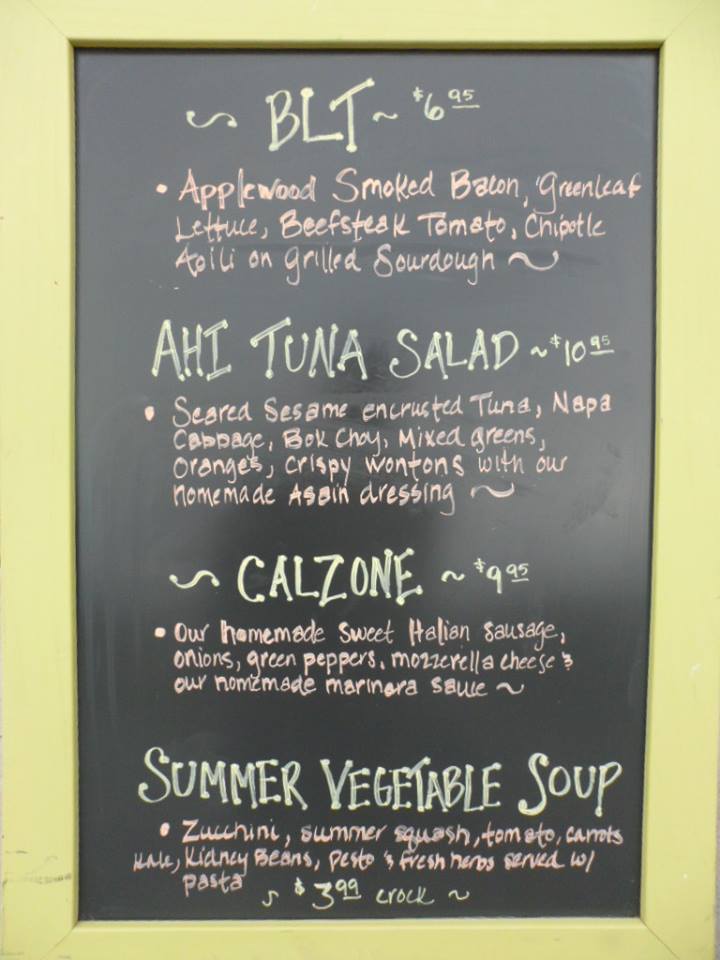 ~ BLT ~ $6.95
• Applewood Smoked Bacon, Greenleaf
Lettuce, Beefsteak Tomato, Chipotle
Aoili on grilled Sourdough ~
AHI TUNA SALAD ~ $10.95
• Seared Sesame encrusted Tuna, Napa
Cabbage, Bok Choy, Mixed greens,
Oranges, crispy wontons with our
homemade Asain dressing ~
~ CALZONE ~ $9.95
• Our homemade sweet Italian sausage,
onions, green peppers, mozzerella cheese &
our homemade marinara sauce ~
SUMMER VEGETABLE SOUP
• Zucchini, summer squash, tomato, carrots
Kale, Kidney Beans, pesto & fresh herbs served w/
pasta
~ $3.99 crock ~